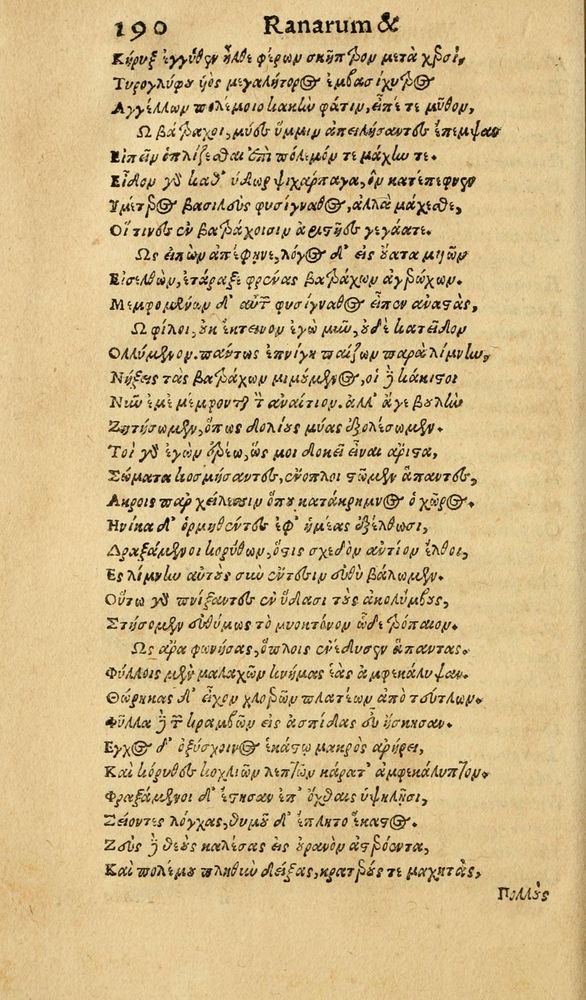 190 Ranarum &
Κήρυξ ἐγγύθεν ἦλθε φέρων σκῆπτρον μετὰ χερσὶ,
Τυρογλύφου υἱὸς μεγαλήτορος ἐμβασίχυτρος
Αγγέλλων πολέμοιο κακὼν φάτιν, εἶπέ τε μῦθον,
Ω βάτραχοι, μύες ὔμμιν ἀπειλήσαντες ἔπεμψαν
Εἰπεῖν ὁπλίζεσθαι ἐπὶ πόλεμόν τε μάχην τε.
Εἶδον γὸ καθ' ὕδωρ ψιχάρπαγα, ὃν κατέπεφνεν
Υμέτερος βασιλεὺς φυσίγναθος, ἀλλὰ μάχεσθε,
Οἵ τινες ἐν βατράχοισιν ἀριστῆες γεγάατε.
Ως εἰπὼν ἀπέφηνε, λόγος δ' εἰς οὔατα μυῶν
Εἰσελθὼν, ἐτάραξε φρένας βατράχων ἀγρώχων.
Μεμφομένων δ' αὐτ φυσίγναθος εἶπεν ἀναστὰς,
Ω φίλοι, οὐκ ἔκτεινον ἐγὼ μῦν, οὐδὲ κατεῖδον
Ολλύμενον. πάντως ἐπνίγη παίζων παρὰ λίμνην,
Νήξεις τὰς βατράχων μιμούμενος, οἱ ἢ κάκιστοι
Νῦν ἐμὲ μέμφονται τ ἀναίτιον. ἀλλ' ἄγε βουλὴν
Ζητήσωμεν, ὅπως δολίους μύας ἐξολέσωμεν.
Τοὶ γὸ ἐγὼν ἐρέω, ὥς μοι δοκεῖ εἶναι ἄριστα,
Σώματα κοσμήσαντες, ἔνοπλοι στῶμεν ἅπαντες,
Ακροις παρ χείλεσσιν ὅπου κατάκρημνος ὁ χῶρος.
Ηνίκα δ' ὁρμηθέντες ἐφ' ἡμέας ἐξέλθωσι,
Δραξάμενοι κορύθων, ὅστις σχεδὸν ἀντίον ἔλθοι,
Ες λίμνην αὐτοὺς σὺν ἔντεσιν εὐθὺ βάλωμεν.
Οὕτω γὸ πνίξαντες ἐν ὕδασι τοὺς ἀκολύμβους,
Στήσομεν εὐθύμως τὸ μυοκτόνον ὧδε τρόπαιον.
Ως ἄρα φωνήσας, ὅπλοις ἐνέδυσεν ἅπαντας.
Φύλλοις μὲν μαλαχῶν κνήμας ἑὰς ἀμφεκάλυψαν.
Θώρηκας δ' εἶχον χλοερῶν πλατέων ἀπὸ τεύτλων.
Φύλλα ἢ τ κραμβῶν εἰς ἀσπίδας εὖ ἤσκησαν.
Εγχος δ' ὀξύσχοινος ἑκάστῳ μακρὸς ἀρήρει,
Καὶ κόρυθες κοχλιῶν λεπτῶν κάρατ' ἀμφεκάλυπτον.
Φραξάμενοι δ' ἔστησαν ἐπ' ὄχθαις ὑψηλῇσι,
Σείοντες λόγχας, θυμοῦ δ' ἔπλητο ἕκαστος.
Ζεὺς ἢ θεοὺς καλέσας εἰς οὐρανὸν ἀστερόεντα,
Καὶ πολέμου πληθὺν δείξας, κρατερούς τε μαχητὰς,
Πολλοὺς